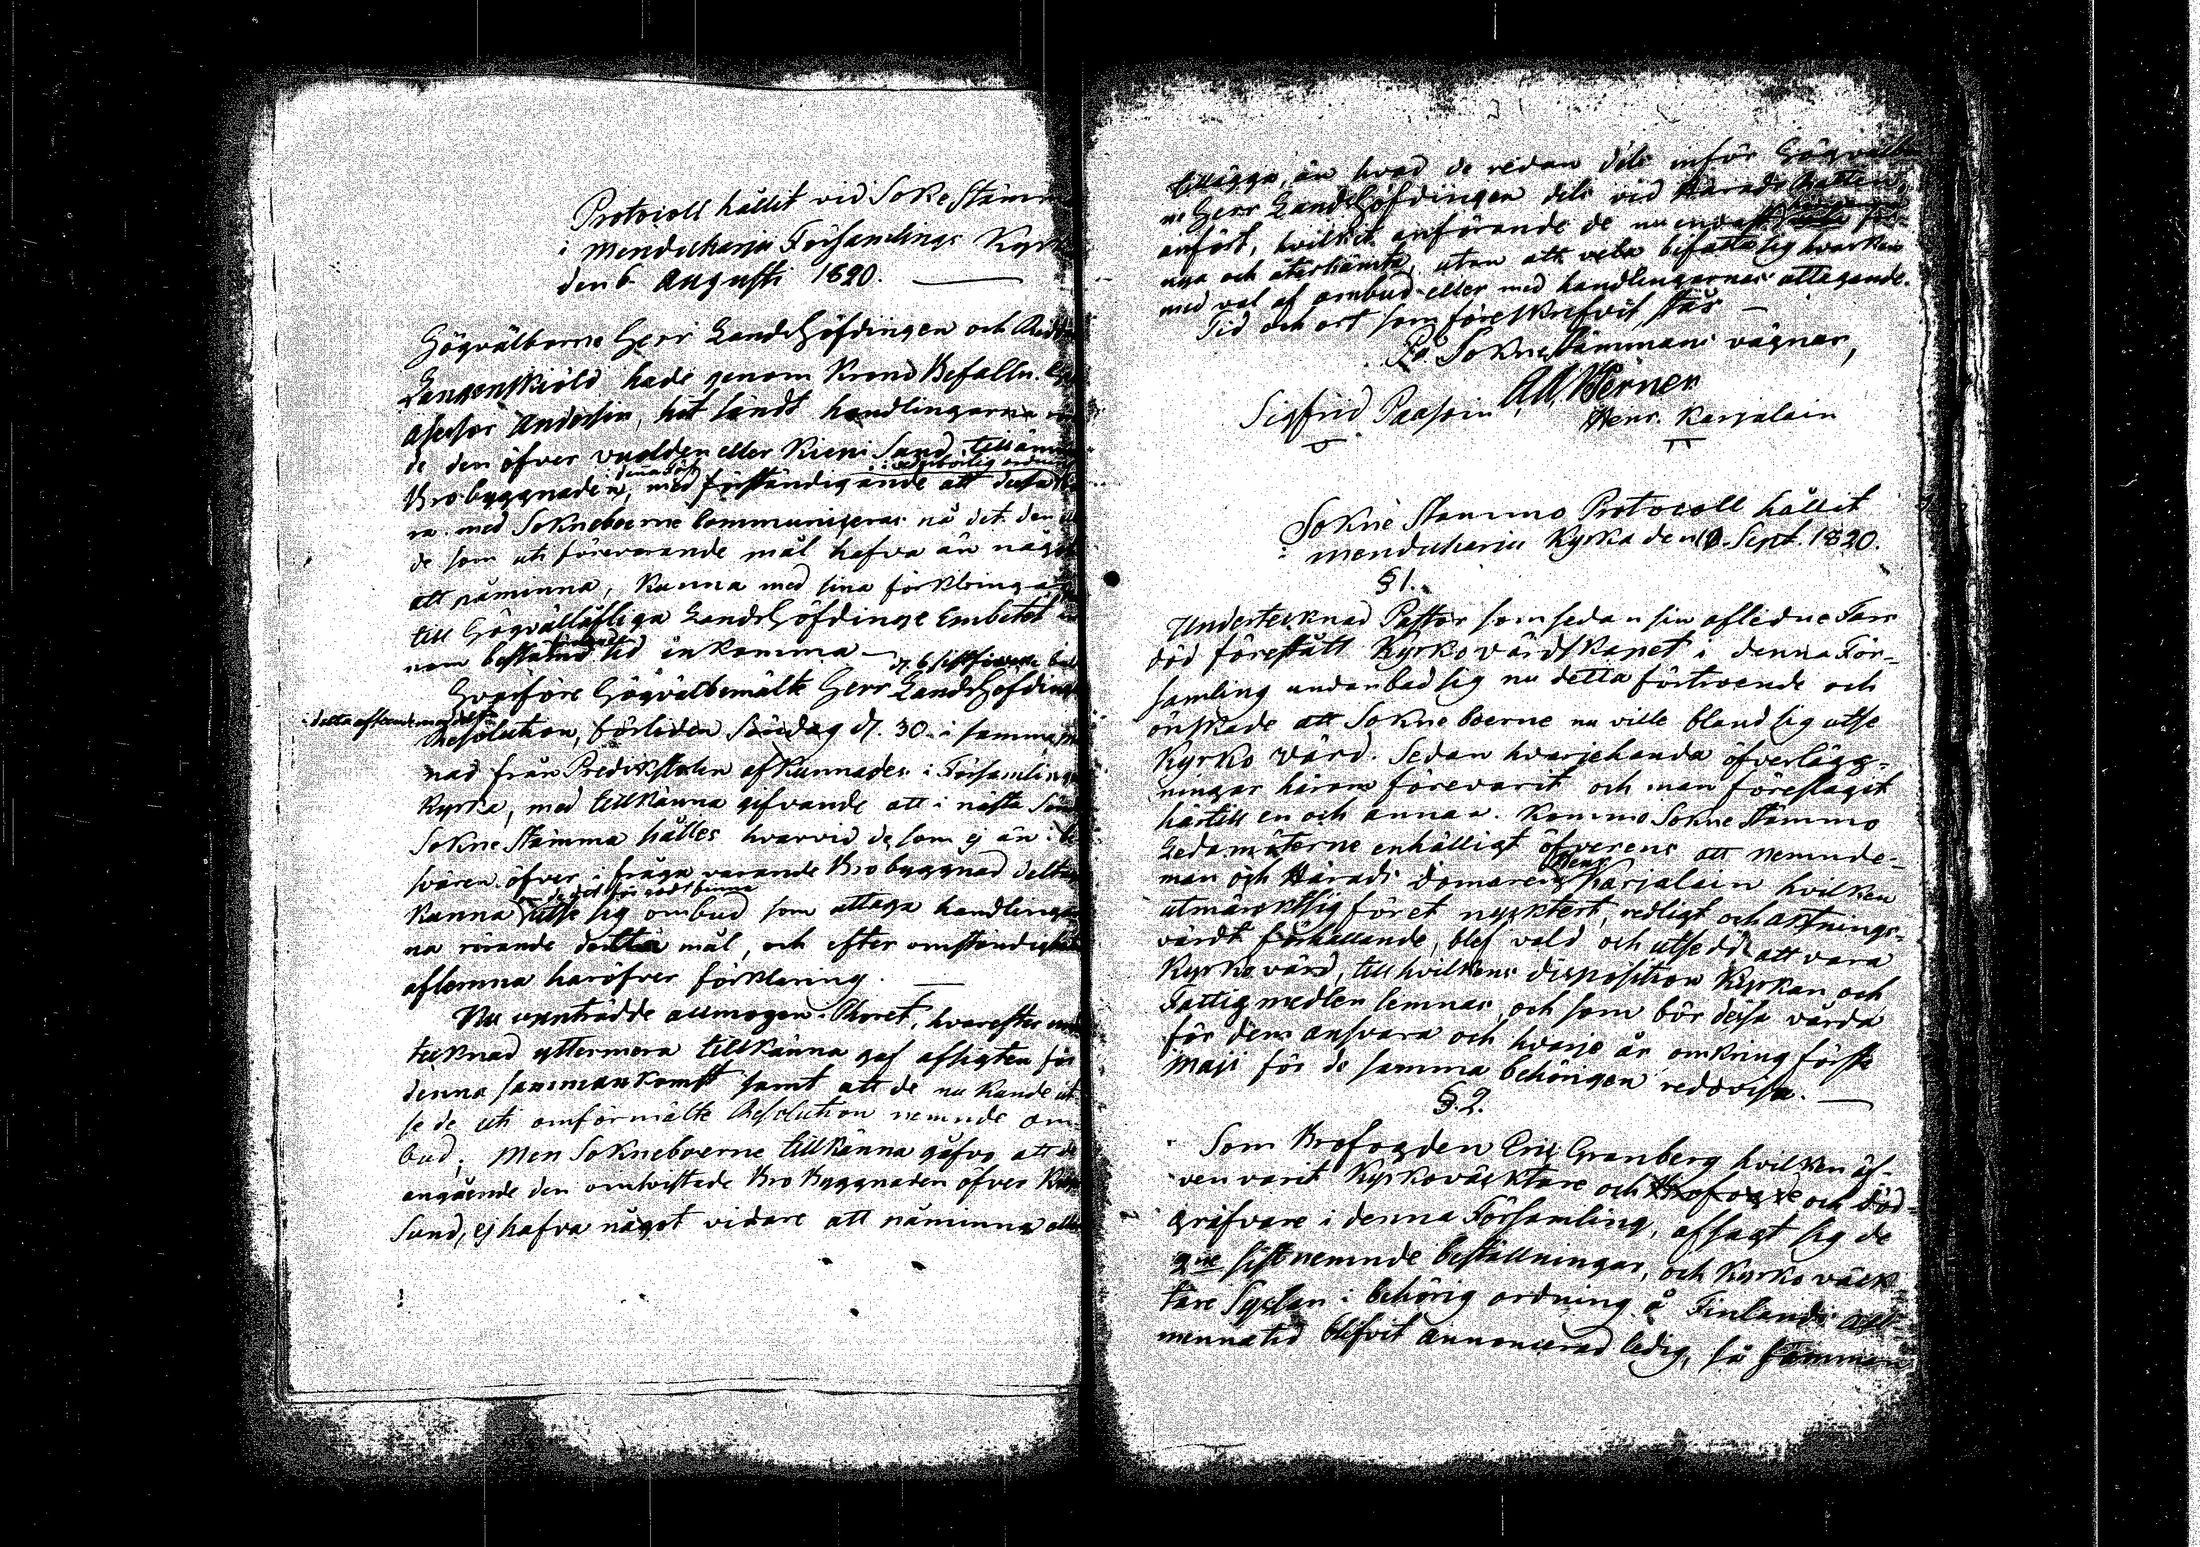 Protocoll hållit vid Sokne Stämm
i Menducharju Församlings Kyrk
den 6 Augusti 1820.
Högvälborne Herr LandsHöfdingen och Ridd
hade genom Krono Befalln.
Asessor Andersin, hit sändt handlingarna
de den öfver vuolden eller Kieni Sund
behörig ordning
Brobyggnaden, med förständigande att dessa
ra med Sokneboerne communiceras på det den
de som uti förevarande mål hafva än något
att påminna, kunna med sina förklaringar
till Högvällofliga LandsHöfdinge Embetet
nom bestämd tid inkomma —
Hvarföre Högvälbemälte Herr LandsHöfding
Resolution, förliden Söndag d. 30. i samma
nad från Predikstolen afkunnades i Församlings
Kyrka, med tillkänna gifvande att i nästa Sön
Sokne Stämma hålles hvarvid de som ej än i be
svären öfver i fråga varande Brobyggnad deltag
de god för godt finna
kunna utse sig ombud som attaga handlinga
na rörande detta mål, och efter omständighet
aflemna häröfver förklaring. —
Nu uppträdde allmogen i Choret, hvarefter und
tecknad yttermera tillkänna gaf afsigten för
denna sammankomst samt att de nu kunde ut
se de uti omförmälte Resolution nemnde om-
bud; Men Sokneboerne tillkänna gåfvo att de
angående den omtvistade BroByggnaden öfver Kieni
Sund, ej hafva något vidare att påminna eller
tillägga, än hvad de redan dels inför Högvälbor
ne Herr LandsHöfdingen dels vid HäradsRätten
anfört, hvilket anförande de nu endast
nya och återhämta, utan att vela befatta sig hvarken
med val af ombud eller med handlingarnas attagande.
Tid och ort som föreskrefvit står —
På SokneStämmans vägnar,
A. W. Berner
Sigfrid Paasoin Henr. Karjalain
Sokne Stämmo Protocoll hållit
i Menducharju Kyrka den 10. Sept. 1820.
§ 1.
Undertecknad Pastor som sedan sin aflidne Fars
död förestått Kyrkovärdskapet i denna För-
samling undanbad sig nu detta förtroende och
önskade att Sokneboerne nu ville bland sig utse
Kyrko värd. Sedan hvarjehanda öfverlägg-
ningar härom förevarit och man föreslagit
härtill en och annan. Kommo Sokne Stämmo
Ledamöterne enhälligt öfverens att Nemnde-
Henr.
man och Härads Domaren Karjalain hvilken
utmärckt sig för et nycktert, redligt och aktnings-
värdt förhållande, blef vald och utsedd att vara
Kyrkovärd, till hvilkens disposition Kyrkan och
Fattigmedlen lemnas, och som bör dessa vårda
för dem ansvara och hvarje år omkring förste
Maji för de samma behörigen redovisa. —
§. 2.
Som Brofogden Eric Granberg hvilken äf-
ven varit Kyrkoväcktare och Brofogde och död-
gräfvare i denna Församling, afsagt sig de
2ne sistnemnde beställningar, och Kyrko väck
tare Syslan i behörig ordning å Finlands All-
mennatid blifvit Annoncerad ledig, så